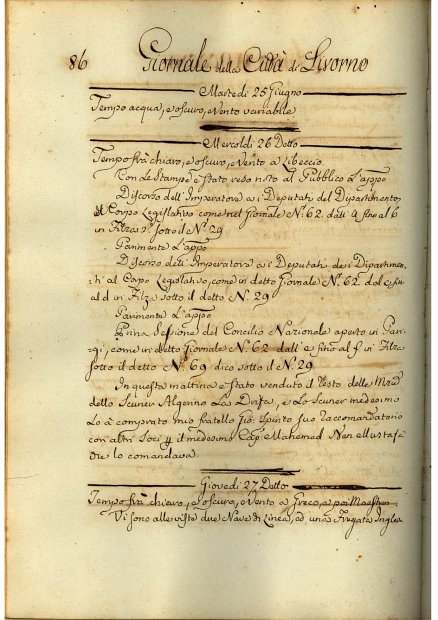 86 Giornale della Città di Livorno
Martedi 25 Giugno
Tempo acqua, e oscuro, Vento variabile
Mercoldi 26 Detto
Tempo frà chiaro, e oscuro, Vento a Libeccio.
Con le Stampe è stato reso noto al Pubblico L'appo
Discorso dell'Imperatore a i Deputati del Dipartimento,
al Corpo Legislativo come nel Giornale N.º 62 dall'a fino al b
in Filza 2ª sotto il N.º 29
Parimente L'appo
Discorso dell'Imperatore a i Deputati de i Dipartimen-
ti al Corpo Legislativo, come in detto Giornale N.º 62 dal c fin
al d in Filza sotto il detto N.º 29
Parimente L'appo
Prima Sessione del Concilio Nazionale aperto in Pari-
gi, come in detto Giornale N.º 62 dall'e fino al f in Filza
sotto il detto N.º 69 dico sotto il N.º 29
In questa mattina è stato venduto il resto delle
dello Scuner Algerino La Drifa, e Lo Scuner medesimo
Lo à comprato mio fratello Gio: Spirito suo raccomandatario
con altri Soci il medesimo Cap. Mahemed
che lo comandava.
Giovedi 27 Detto
Tempo frà chiaro, e oscuro, Vento a Greco, e poi Maestro
Vi sono alle viste due Nave di Linea, ed una Fregata Ingles